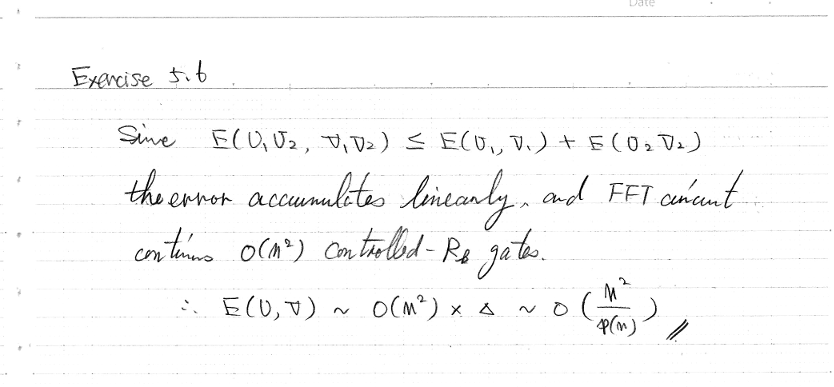 Date
Exercise 5.6
Since E(U₁U₂, V₁V₂) ≤ E(U₁, V₁) + E(U₂ V₂)
the error accumulates linearly, and FFT circuit
contains O(n²) controlled-Rₖ gates.
∴ E(U, V) ~ O(n²) × Δ ~ O(n²/p(n)) //